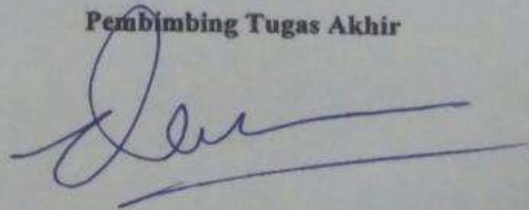 Pembimbing Tugas Akhir